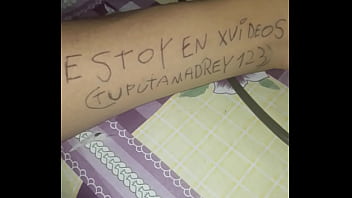 ESTOY EN XVIDEOS
(TUPUTAMADREY123)